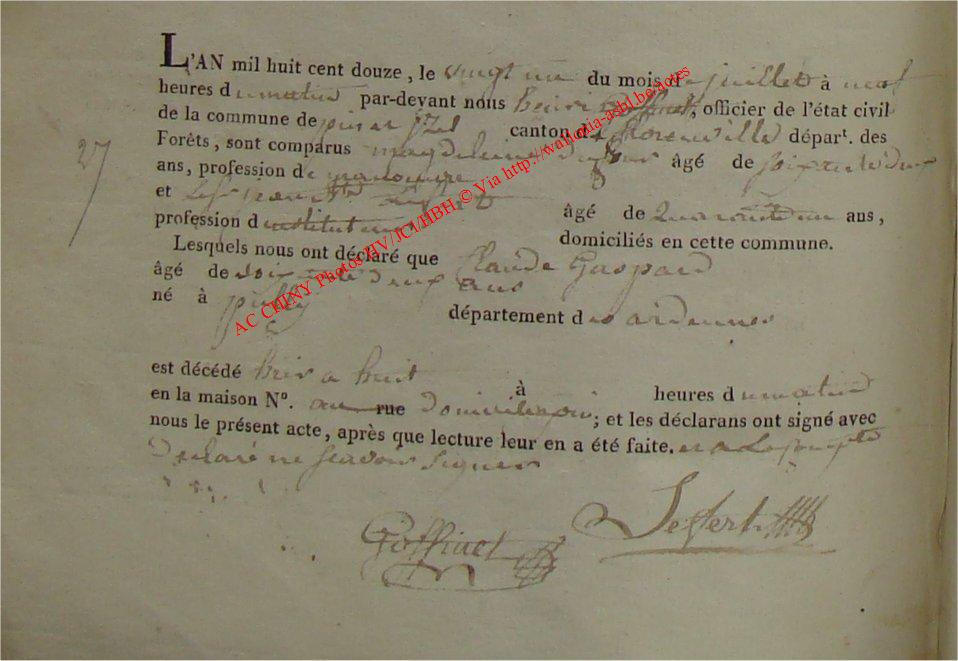 L'AN mil huit cent douze, le vingt un du mois de juillet à neuf
heures du matin par-devant nous henri Goffinet, officier de l'état civil
de la commune de canton de florenville départ. des
Forêts, sont comparus magdeleine âgé de soixante deux
ans, profession de manouvre
27
et âgé de Quarante un ans,
profession d'instituteur domiciliés en cette commune.
Lesquels nous ont déclaré que Claude Gaspard
âgé de soixante deux ans
né à pully département des ardennes
est décédé hier a huit à heures du matin
en la maison N°. rue ; et les déclarans ont signé avec
nous le présent acte, après que lecture leur en a été faite. et a
Declaré ne scavoir signer
Goffinet Seffert
AC CHINY Photos HV/JC1/HBH © Via http://wallonia-asbl.be/actes